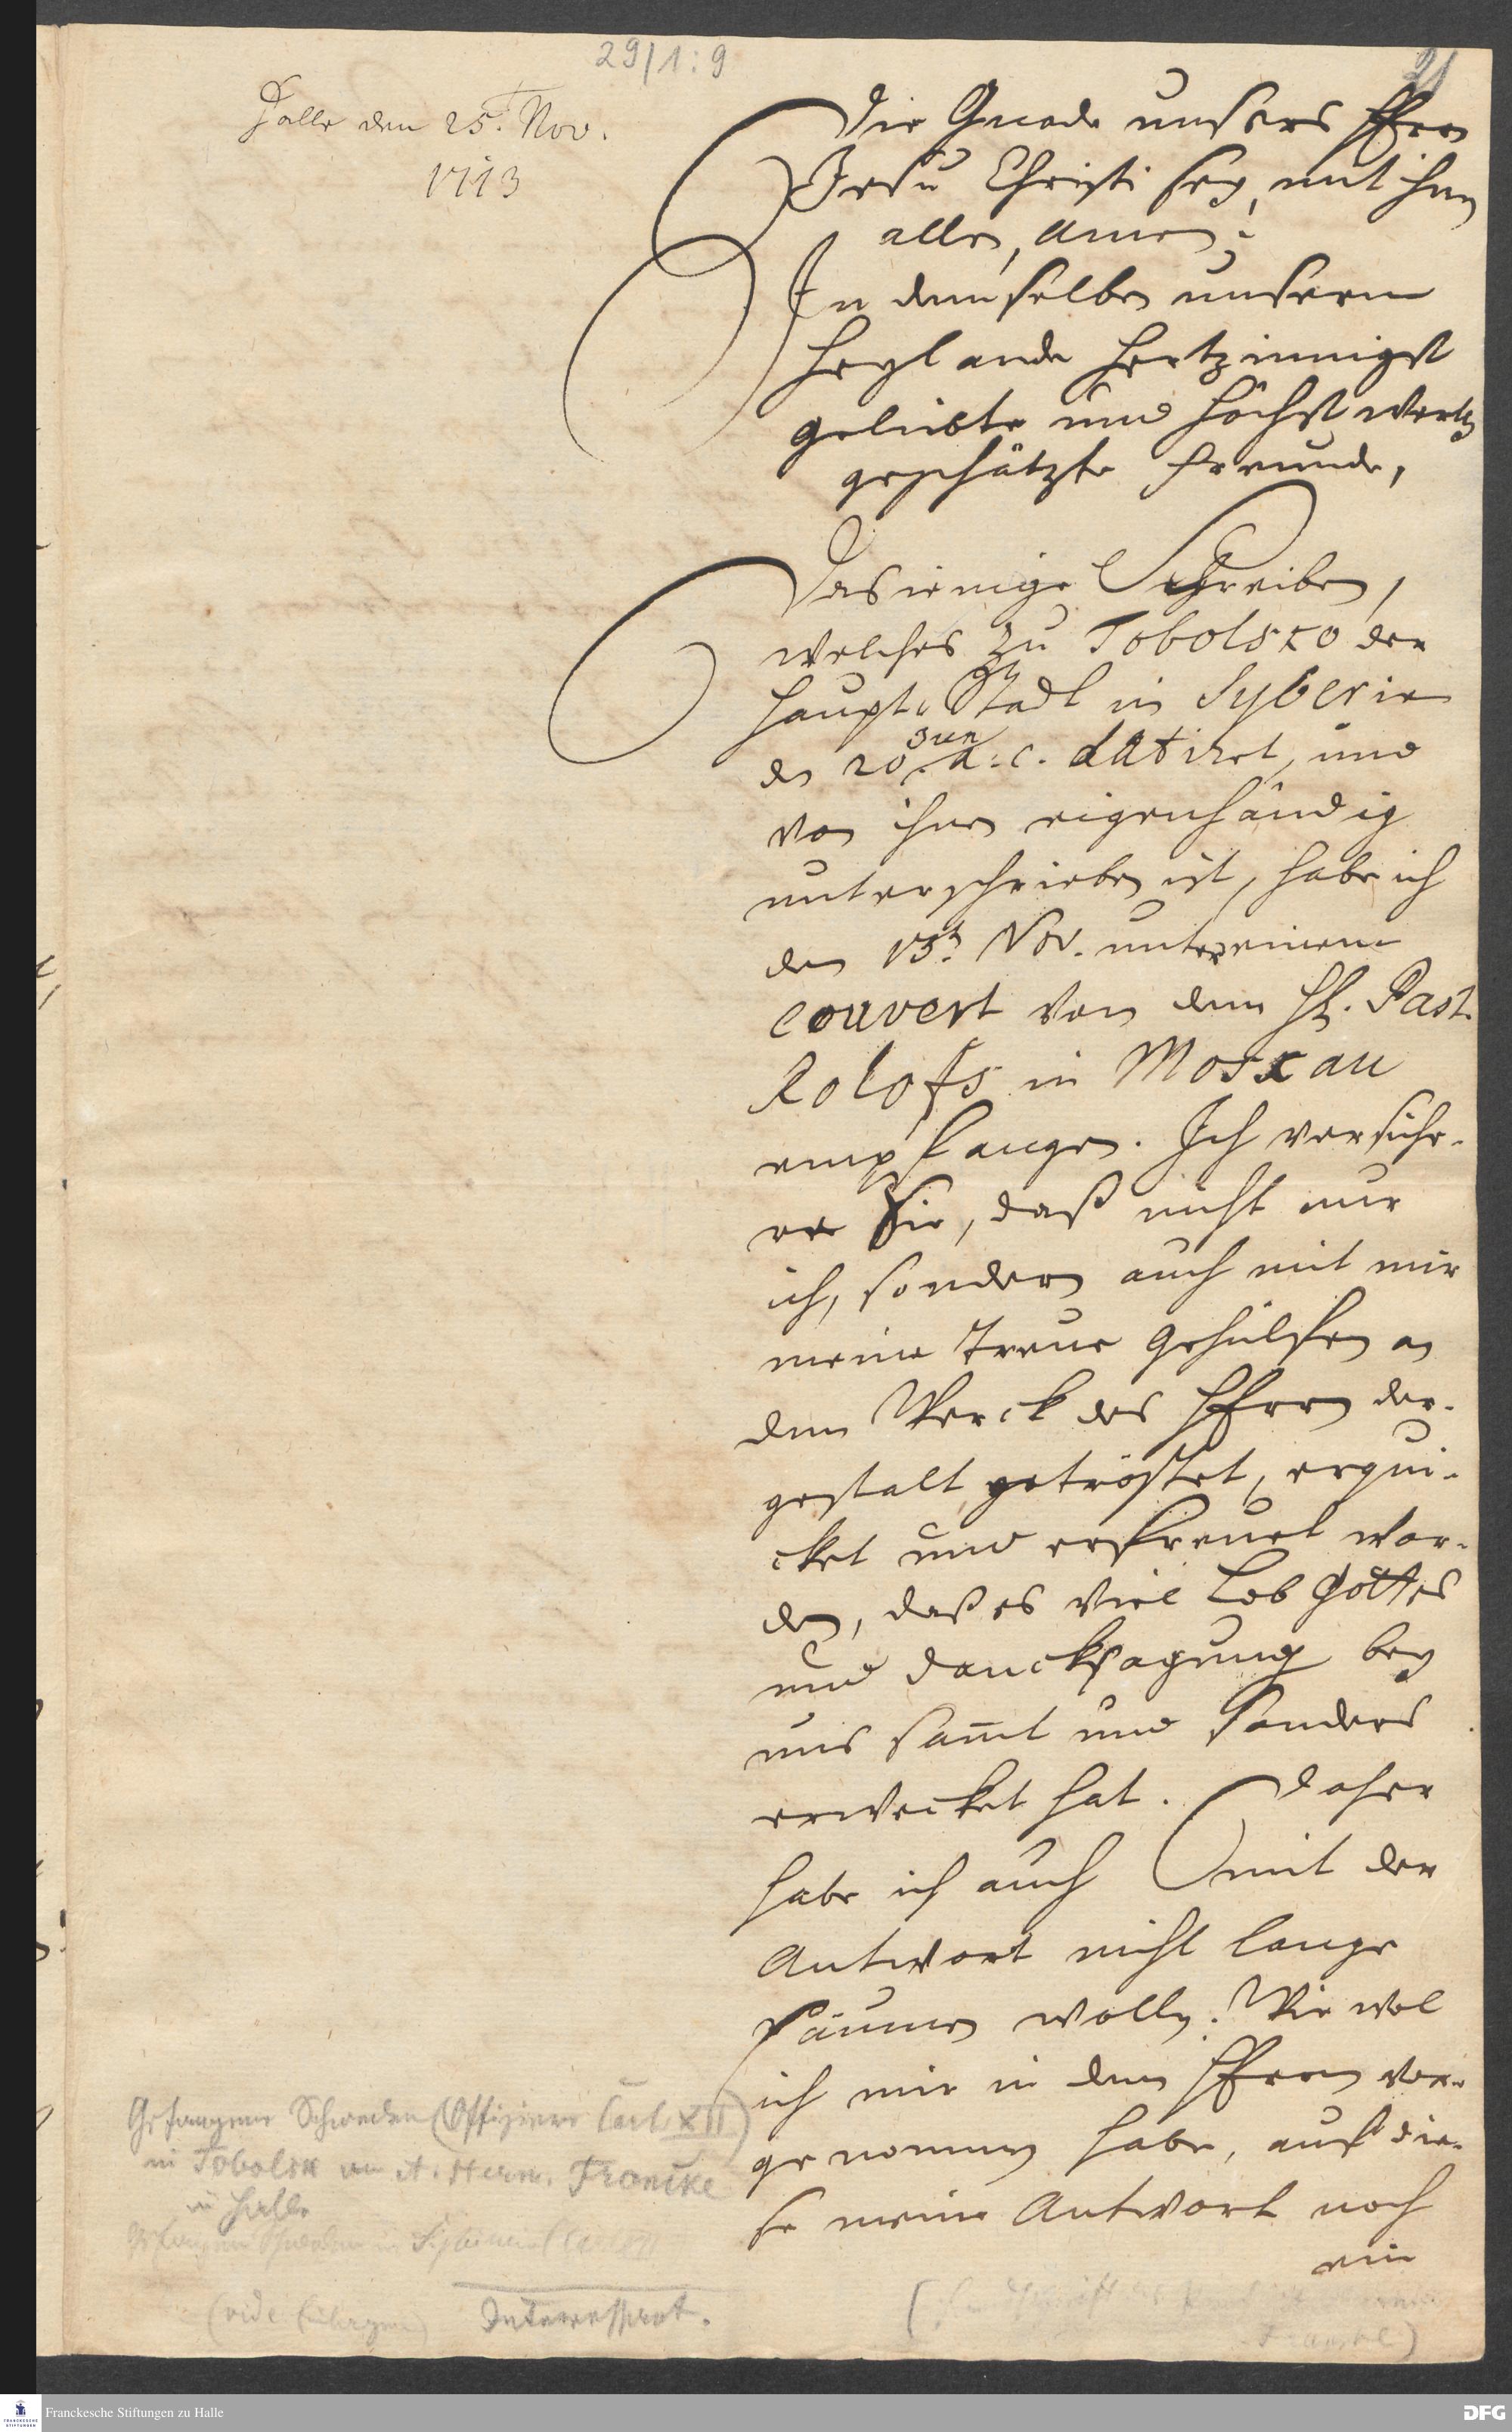 29/1:9
21
Halle den 25. Nov.
1713
Die Gnade unsers HErrn
Jesu Christi sey mit ihnen
allen, Amen!
In demselben unserm
Heylande Hertzinnigst
geliebte und höchst werth
geschätzte Freunde,
Dasienige Schreiben,
welches zu Tobolsko der
Haupt-Stadt in Syberien
den 20 Jun. a. c. datiret, und
von ihnen eigenhändig
unterschrieben ist, habe ich
den 13. Nov. unter einem
couvert von dem H. Past.
Rolofs in Moskau
empfangen. Ich versiche-
re Sie, daß nicht nur
ich, sondern auch mit mir
meine treue Gehülfen an
dem Werck des HErrn der-
gestalt getröstet, erqui-
cket und erfreuet wor-
den, daß es viel Lob Gottes
und Dancksagung bey
uns samt und sonders
erwecket hat. Daher
habe ich auch mit der
Antwort nicht lange
säumen wollen. Wie wol
ich mir in dem HErrn vor-
genommen habe, auf die-
se meine Antwort noch
ein
Gefangene Schweden (Offiziere Carl XII)
in Tobolsk an A. Herm. Francke
in Halle
Gefangene Schweden in Sibirien (Carl XII
(vide
Interessant.
Francke)
Franckesche Stiftungen zu Halle
DFG